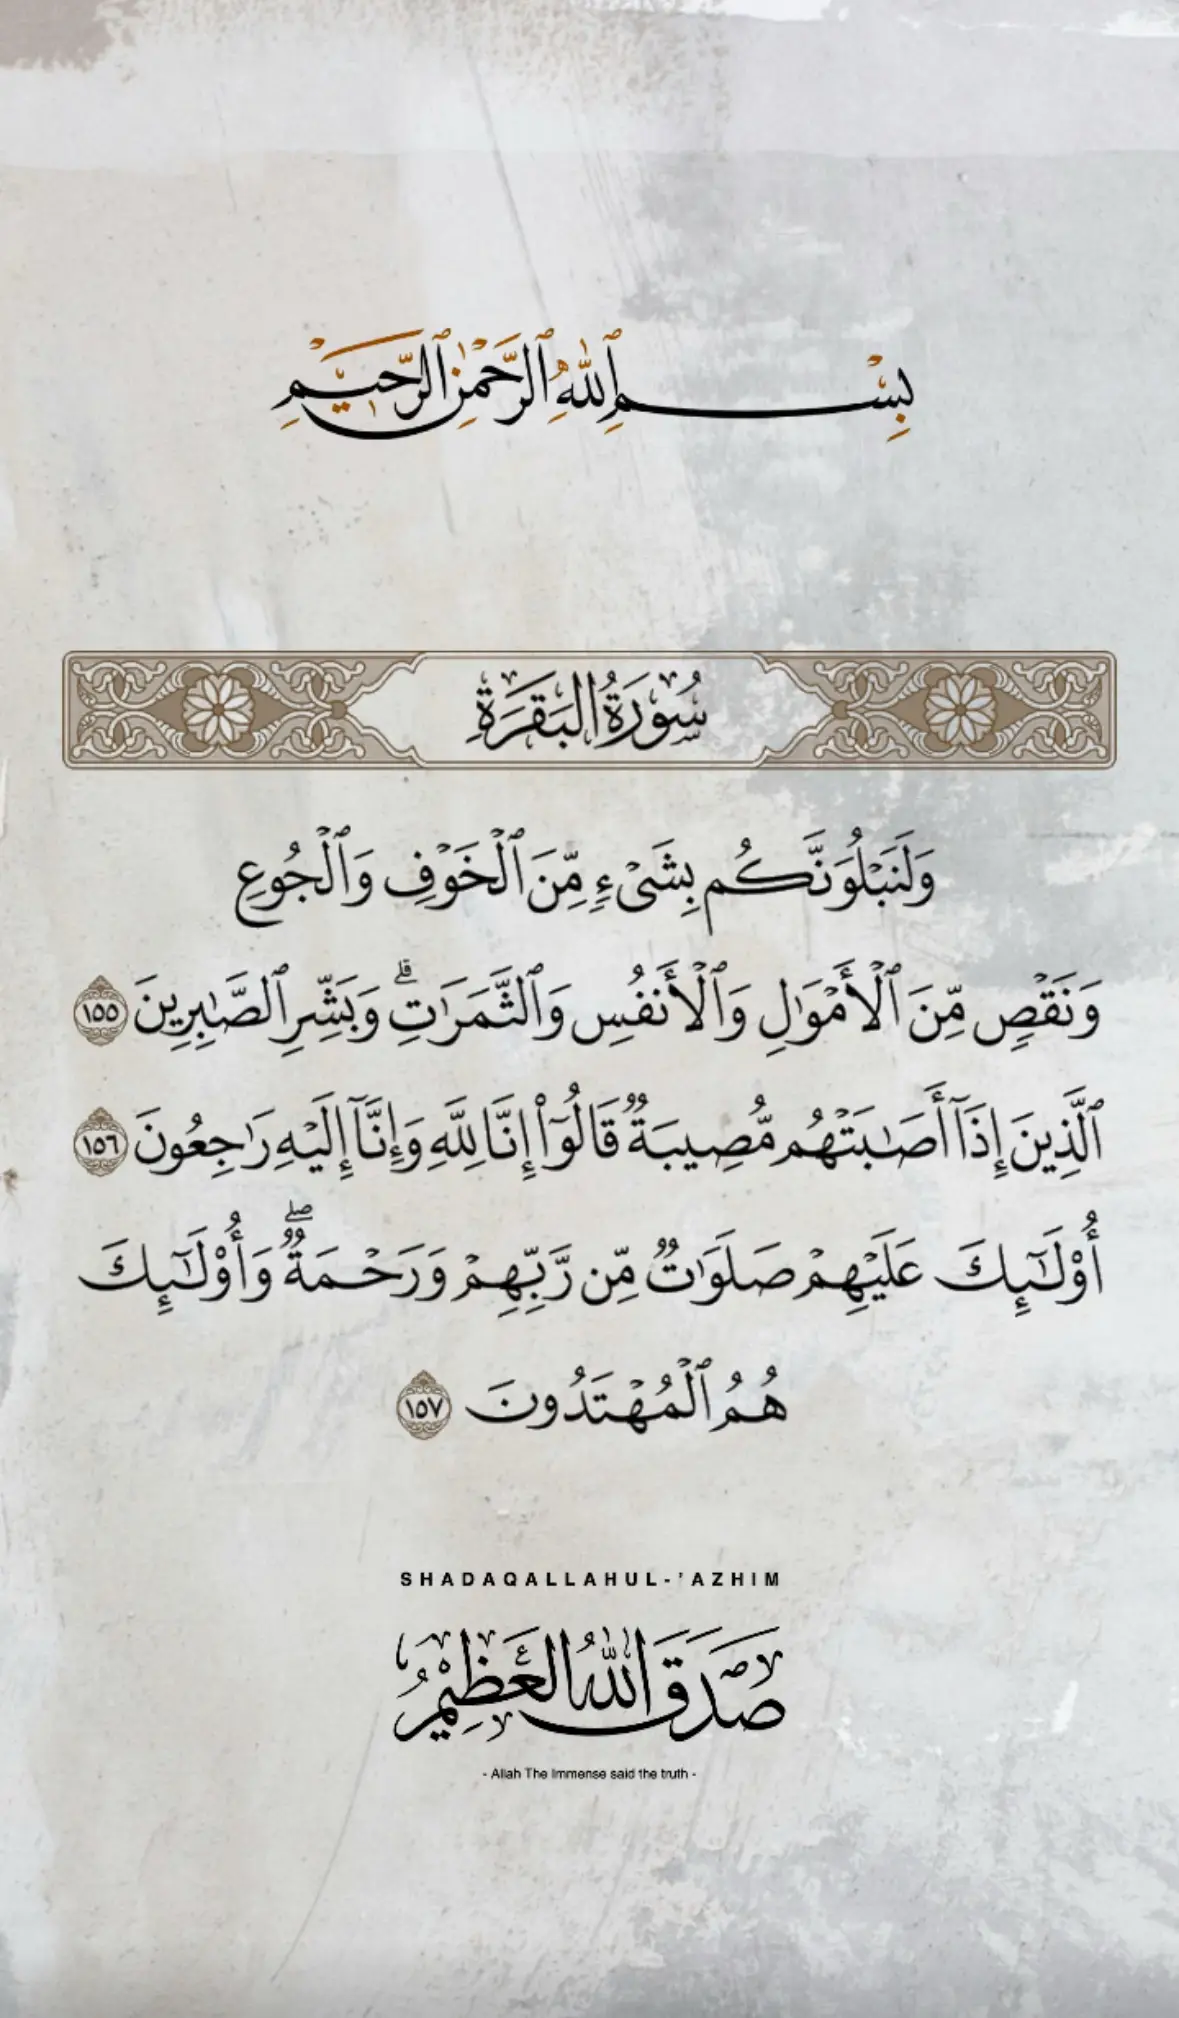 بِسْمِ ٱللَّهِ ٱلرَّحْمَٰنِ ٱلرَّحِيمِ
سُورَةُ الْبَقَرَةِ
وَلَنَبْلُوَنَّكُم بِشَىْءٍ مِّنَ ٱلْخَوْفِ وَٱلْجُوعِ
وَنَقْصٍ مِّنَ ٱلْأَمْوَٰلِ وَٱلْأَنفُسِ وَٱلثَّمَرَٰتِ ۗ وَبَشِّرِ ٱلصَّٰبِرِينَ ١٥٥
ٱلَّذِينَ إِذَآ أَصَٰبَتْهُم مُّصِيبَةٌ قَالُوٓا۟ إِنَّا لِلَّهِ وَإِنَّآ إِلَيْهِ رَٰجِعُونَ ١٥٦
أُو۟لَٰٓئِكَ عَلَيْهِمْ صَلَوَٰتٌ مِّن رَّبِّهِمْ وَرَحْمَةٌ ۖ وَأُو۟لَٰٓئِكَ
هُمُ ٱلْمُهْتَدُونَ ١٥٧
SHADAQALLAHUL-'AZHIM
صَدَقَ اللهُ الْعَظِيْمُ
- Allah The Immense said the truth -